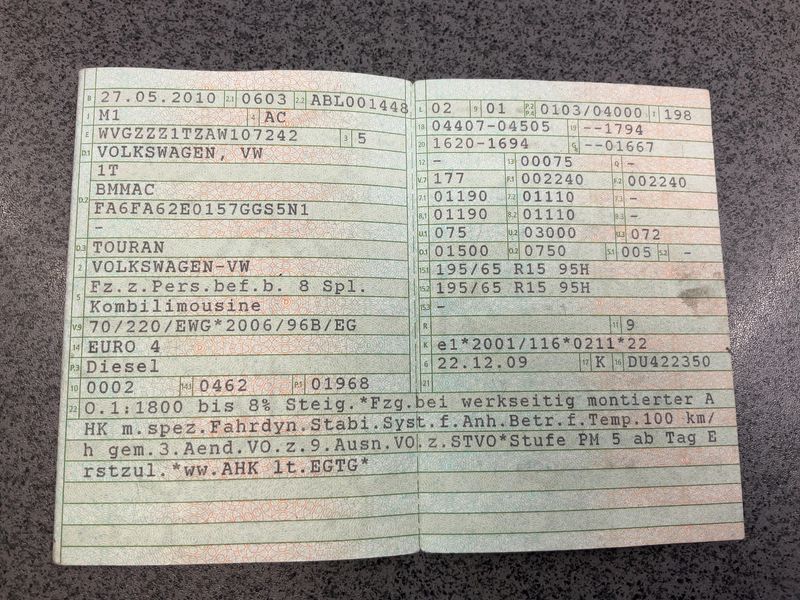 B 27.05.2010 2.1 0603 2.2 ABL001448
J M1 4 AC
E WVGZZZ1TZAW107242 3 5
D.1 VOLKSWAGEN, VW
1T
D.2 BMMAC
FA6FA62E0157GGS5N1
-
D.3 TOURAN
2 VOLKSWAGEN-VW
5 Fz.z.Pers.bef.b. 8 Spl.
Kombilimousine
V.9 70/220/EWG*2006/96B/EG
14 EURO 4
P.3 Diesel
10 0002 14.1 0462 P.1 01968
L 02 9 01 P.2 P.4 0103/04000 T 198
18 04407-04505 19 --1794
20 1620-1694 G --01667
12 - 13 00075 Q -
V.7 177 F.1 002240 F.2 002240
7.1 01190 7.2 01110 7.3 -
8.1 01190 8.2 01110 8.3 -
U.1 075 U.2 03000 U.3 072
O.1 01500 O.2 0750 S.1 005 S.2 -
15.1 195/65 R15 95H
15.2 195/65 R15 95H
15.3 -
R 11 9
K e1*2001/116*0211*22
6 22.12.09 17 K 16 DU422350
21
22 O.1:1800 bis 8% Steig.*Fzg.bei werkseitig montierter A
HK m.spez.Fahrdyn.Stabi.Syst.f.Anh.Betr.f.Temp.100 km/
h gem.3.Aend.VO.z.9.Ausn.VO.z.STVO*Stufe PM 5 ab Tag E
rstzul.*ww.AHK lt.EGTG*